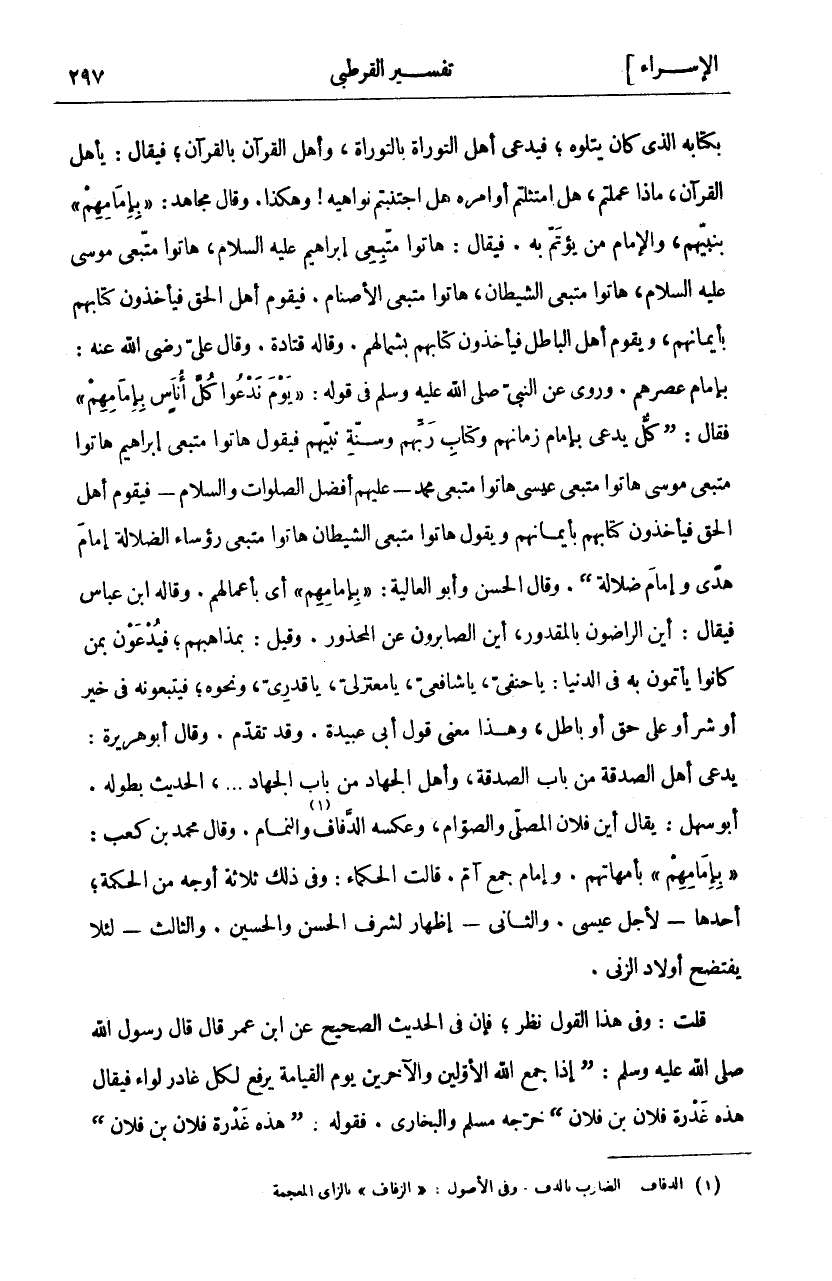 الإســراء ] تفســير القرطبى ٢٩٧
بكتابه الذى كان يتلوه ؛ فيدعى أهل التوراة بالتوراة ، وأهل القرآن بالقرآن ؛ فيقال : يأهل
القرآن ، ماذا عملتم ، هل امتثلتم أوامره هل اجتنبتم نواهيه ! وهكذا . وقال مجاهد : « بِإِمَامِهِمْ »
بنبيّهم ، والإمام من يُؤتَمّ به . فيقال : هاتوا متّبِعِى إبراهيم عليه السلام ، هاتوا متّبعى موسى
عليه السلام ، هاتوا متبعى الشيطان ، هاتوا متبعى الأصنام . فيقوم أهل الحق فيأخذون كتابهم
بأيمانهم ، ويقوم أهل الباطل فيأخذون كتابهم بشمالهم . وقاله قتادة . وقال علىّ رضى الله عنه :
بإمام عصرهم . وروى عن النبىّ صلى الله عليه وسلم فى قوله : « يَوْمَ نَدْعُوا كُلَّ أُنَاسٍ بِإِمَامِهِمْ »
فقال : ” كلٌّ يدعى بإمام زمانهم وكتابِ رَبِّهم وسنّةِ نبيّهم فيقول هاتوا متبعى إبراهيم هاتوا
متبعى موسى هاتوا متبعى عيسى هاتوا متبعى محمد ــ عليهم أفضل الصلوات والسلام ــ فيقوم أهل
الحق فيأخذون كتابهم بأيمانهم ويقول هاتوا متبعى الشيطان هاتوا متبعى رؤساء الضلالة إمامَ
هدًى وإمامَ ضلالة “ . وقال الحسن وأبو العالية : « بِإمامِهِم » أى بأعمالهم . وقاله ابن عباس
فيقال : أين الراضون بالمقدور ، أين الصابرون عن المحذور . وقيل : بمذاهبهم ؛ فيُدْعَوْن بمن
كانوا يأتمون به فى الدنيا : ياحنفىّ ، ياشافعىّ ، يامعتزلىّ ، ياقدرىّ ، ونحوه ؛ فيتبعونه فى خير
أو شر أو على حق أو باطل ، وهــذا معنى قول أبى عبيدة . وقد تقدّم . وقال أبو هريرة :
يدعى أهل الصدقة من باب الصدقة ، وأهل الجهاد من باب الجهاد ... ، الحديث بطوله .
أبو سهل : يقال أين فلان المصلّى والصوّام ، وعكسه الدَّفاف (١) والنمام . وقال محمد بن كعب :
« بِإِمَامِهِمْ » بأمهاتهم . وإمام جمع آتم . قالت الحكماء : وفى ذلك ثلاثة أوجه من الحكمة ؛
أحدها ــ لأجل عيسى . والثانى ــ إظهار لشرف الحسن والحسين . والثالث ــ لئلا
يفتضح أولاد الزنى .
قلت : وفى هذا القول نظر ؛ فإن فى الحديث الصحيح عن ابن عمر قال قال رسول الله
صلى الله عليه وسلم : ” إذا جمع الله الأوّلين والآخرين يوم القيامة يرفع لكل غادر لواء فيقال
هذه غَدْرة فلان بن فلان “ خرّجه مسلم والبخارى . فقوله : ” هذه غَدْرة فلان بن فلان “
(١) الدفاف الضارب بالدف . وفى الأصول : « الزفاف » بالزاى المعجمة